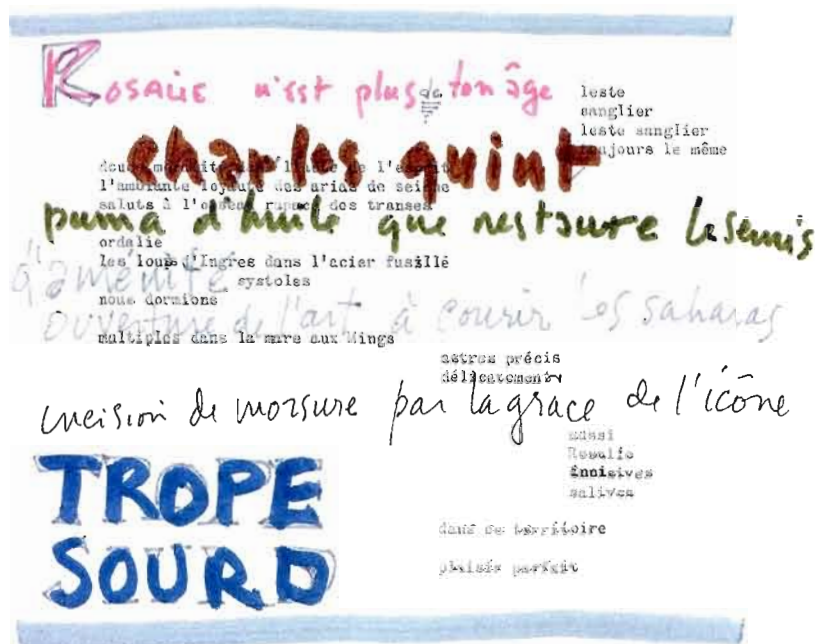 Rosalie n'est plus de ton âge
leste
sanglier
leste sanglier
toujours le même
charles quint
l'ambiante loyauté des arias de
saluts à l'oiseau rapace des transes
puma d'huile que restaure le semis
ordalie
les loups d'Ingres dans l'acier fusillé
d'aménité
systoles
nous dormions
ouverture de l'art à courir les saharas
multiples dans la mare aux Mings
astres précis
délicatement
incision de morsure par la grace de l'icône
aussi
Rosalie
salives
TROPE
SOURD
dans ce territoire
plaisir parfait